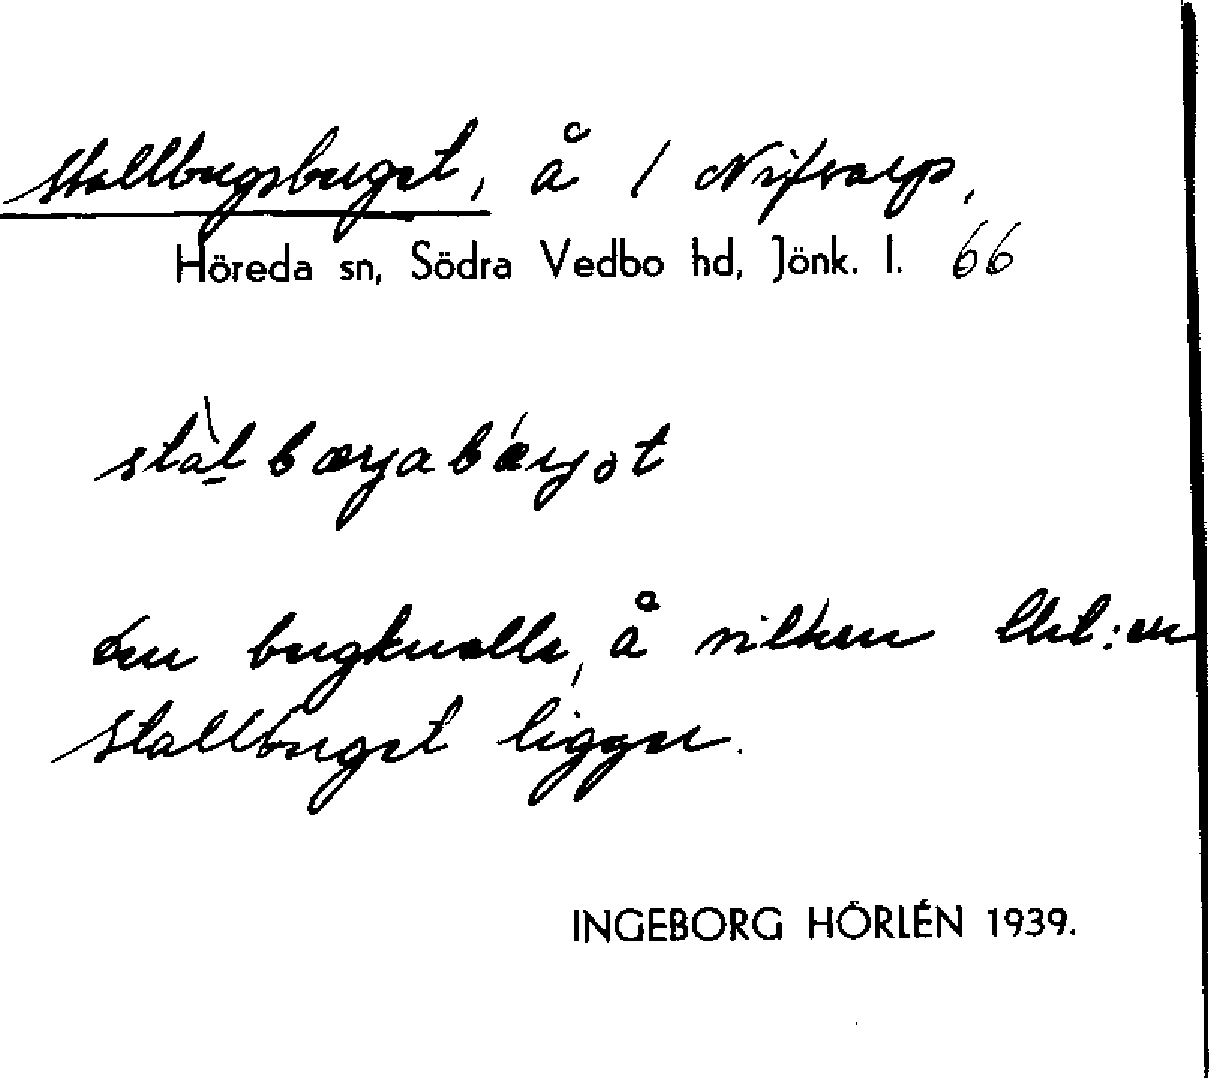 Stallbergsberget, å 1 Nifsarp,
Höreda sn, Södra Vedbo hd, Jönk. l. 66
stàl bærjabǽrjət
den bergknalle, å vilken lht:en
Stallberget ligger.
INGEBORG HÖRLÉN 1939.